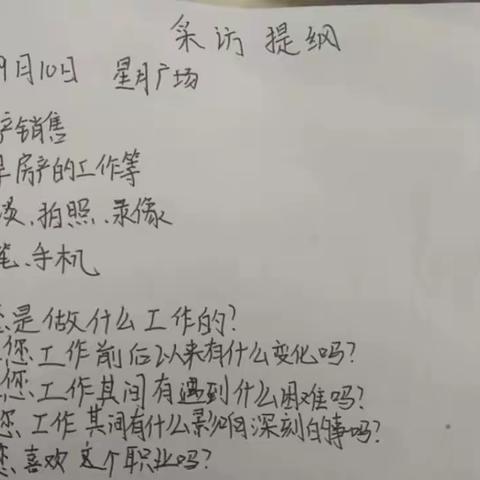 采访提纲
9月10日 星月广场
产销售
房产的工作等
谈、拍照、录像
笔、手机
您是做什么工作的?
您工作前后以来有什么变化吗?
您工作其间有遇到什么困难吗?
您工作其间有什么影响深刻的事吗?
您喜欢这个职业吗?